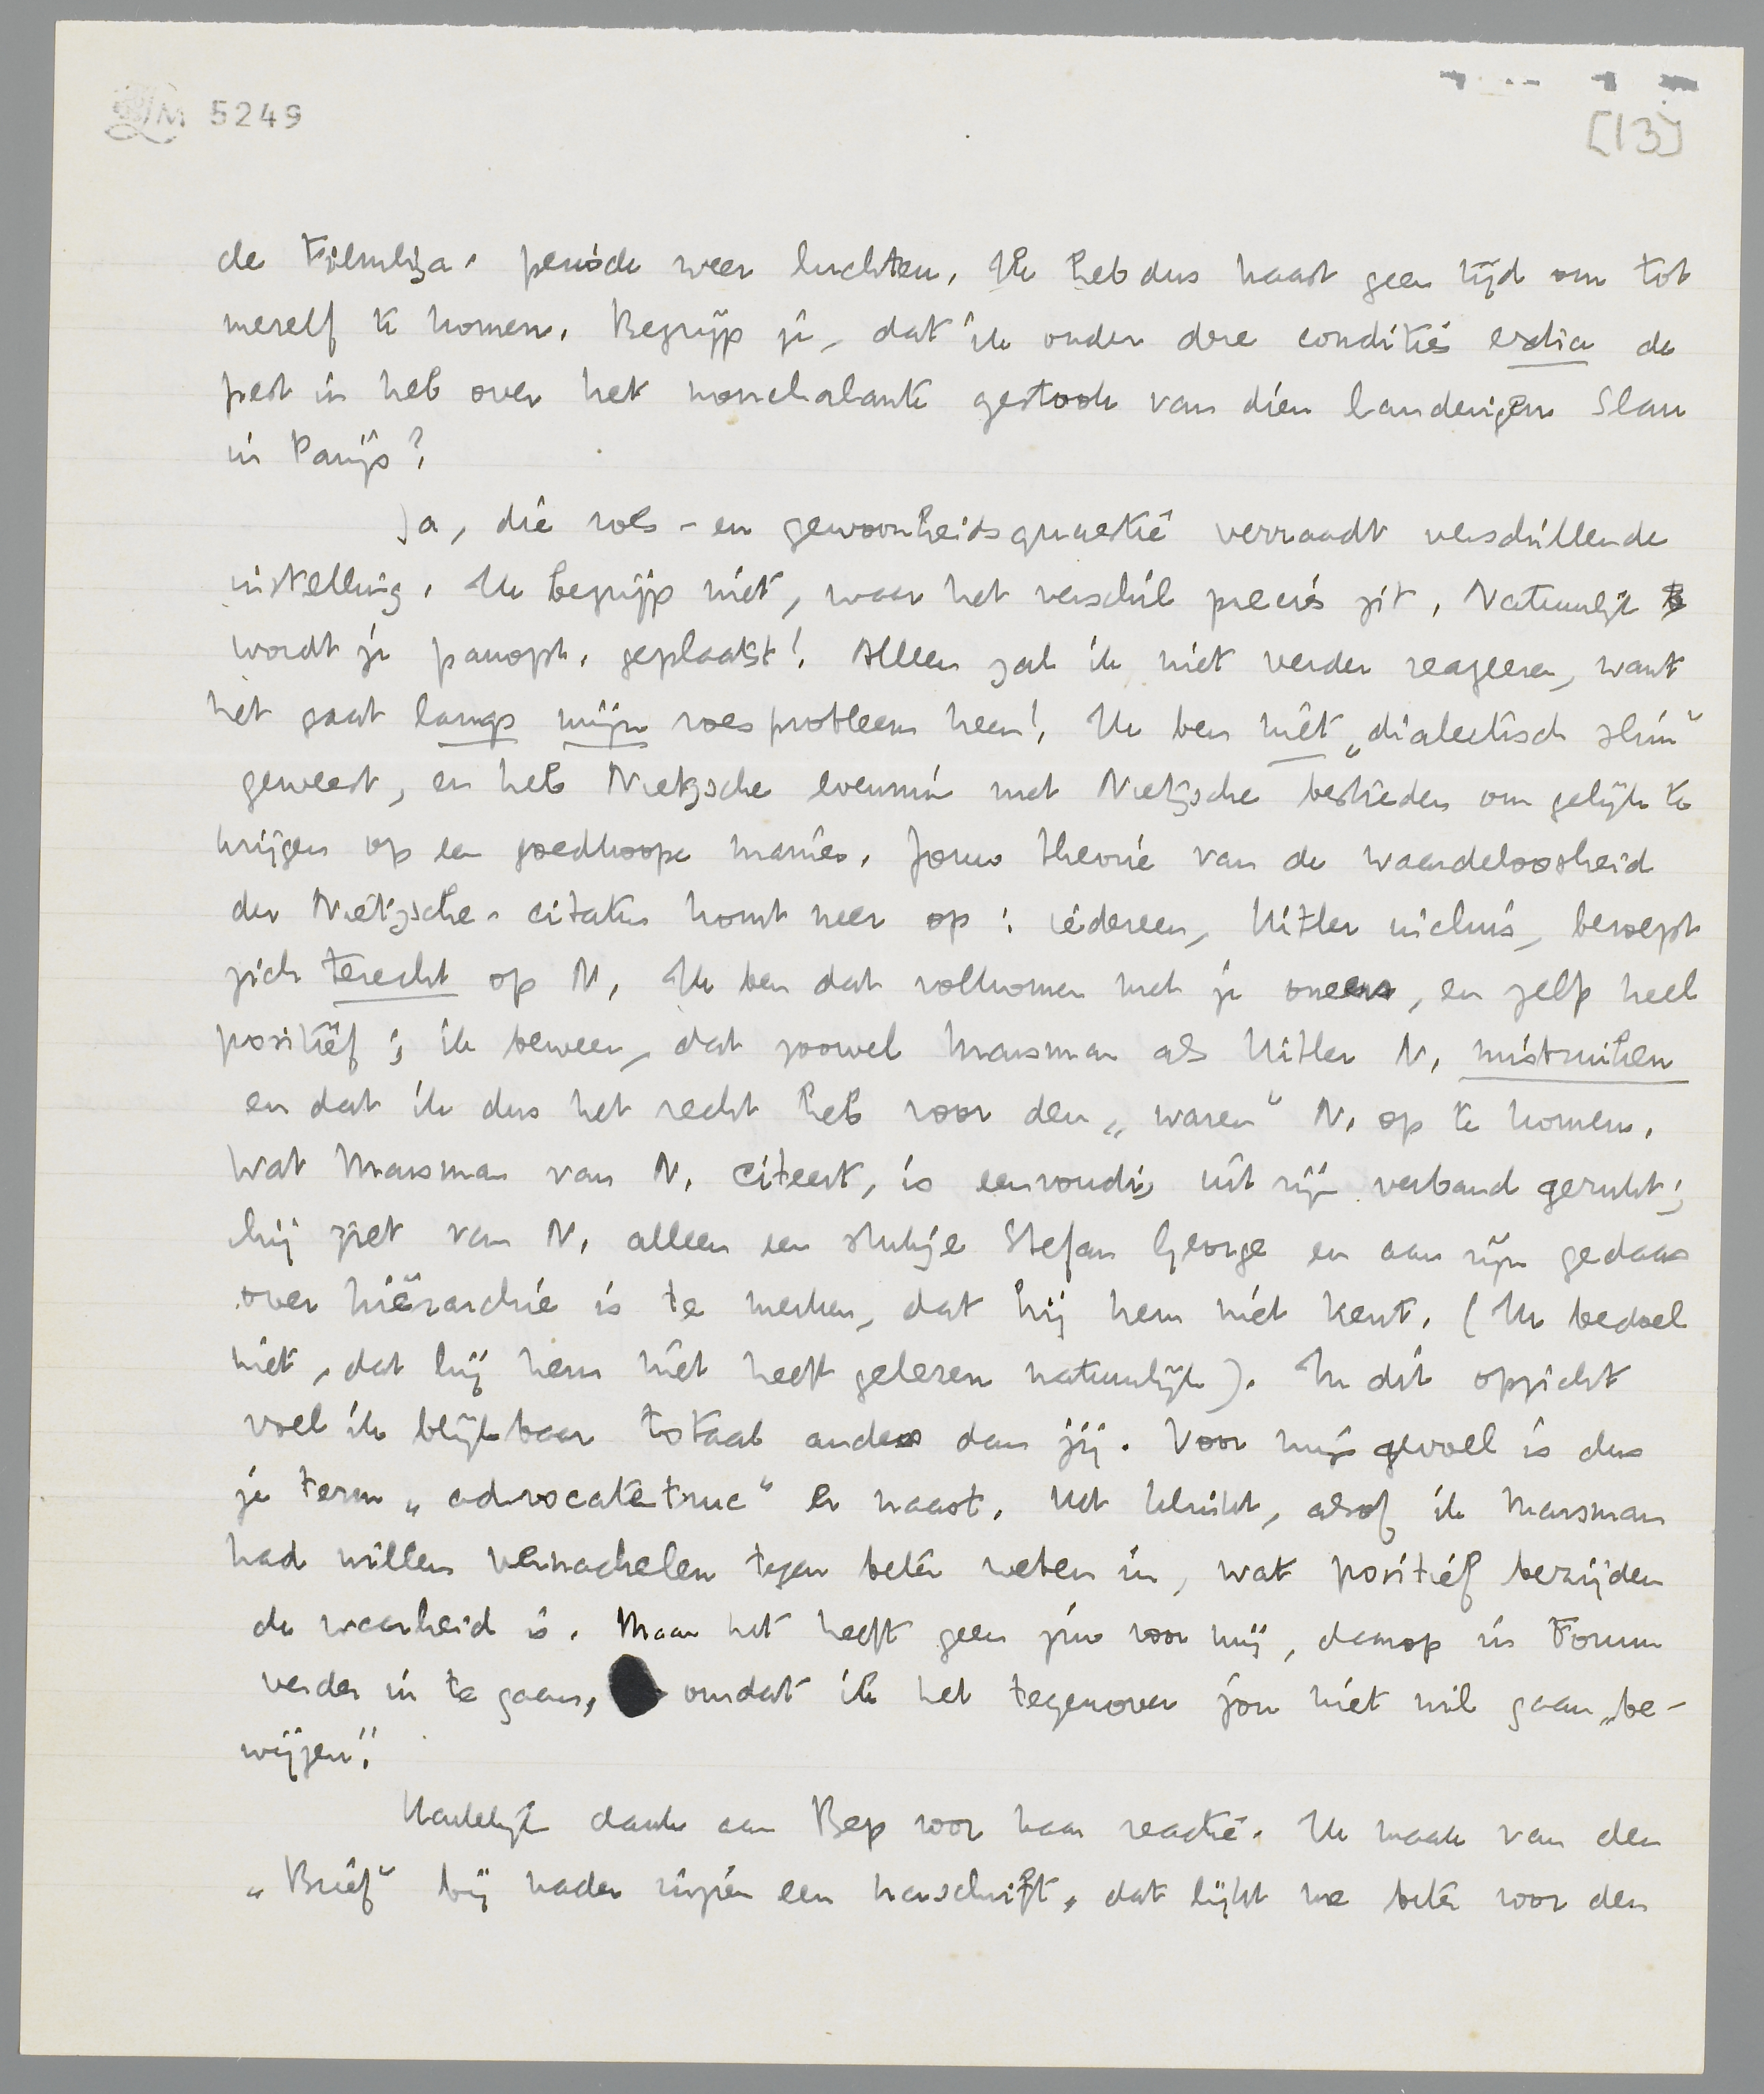 LM 5249
[13]
de Filmliga-periode weer luchten. Ik heb dus haast geen tijd om tot
mezelf te komen. Begrijp je, dat ik onder deze condities extra de
pest in heb over het nonchalante gestook van dien landerigen Slau
in Parijs?
Ja, die roes- en gewoonheidsquaestie verraadt verschillende
instelling. Ik begrijp niet, waar het verschil precies zit. Natuurlijk
wordt je panopt. geplaatst! Alleen zal ik niet verder reageeren, want
het gaat langs mijn roesprobleem heen! Ik ben niet „dialectisch slim"
geweest, en heb Nietzsche evenmin met Nietzsche bestreden om gelijk te
krijgen op een goedkoope manier. Jouw theorie van de waardeloosheid
der Nietzsche-citaten komt neer op: iedereen, Hitler incluis, beroept
zich terecht op N. Ik ben dat volkomen met je oneens, en zelfs heel
positief; ik beweer, dat zoowel Marsman als Hitler N. misbruiken
en dat ik dus het recht heb voor den „waren" N. op te komen.
Wat Marsman van N. citeert, is eenvoudig uit zijn verband gerukt;
hij ziet van N. alleen een stukje Stefan George en aan zijn gedaas
over hiërarchie is te merken, dat hij hem niet kent. (Ik bedoel
niet, dat hij hem niet heeft gelezen natuurlijk). In dit opzicht
voel ik blijkbaar totaal anders dan jij. Voor mijn gevoel is dus
je term „advocatetruc" er naast. Het klinkt, alsof ik Marsman
had willen vernachelen tegen beter weten in, wat positief bezijden
de waarheid is. Maar het heeft geen zin voor mij, daarop in Forum
verder in te gaan, omdat ik het tegenover jou niet wil gaan „be-
wijzen".
Hartelijk dank aan Bep voor haar reactie. Ik maak van den
„Brief" bij nader inzien een handschrift, dat lijkt me beter voor den